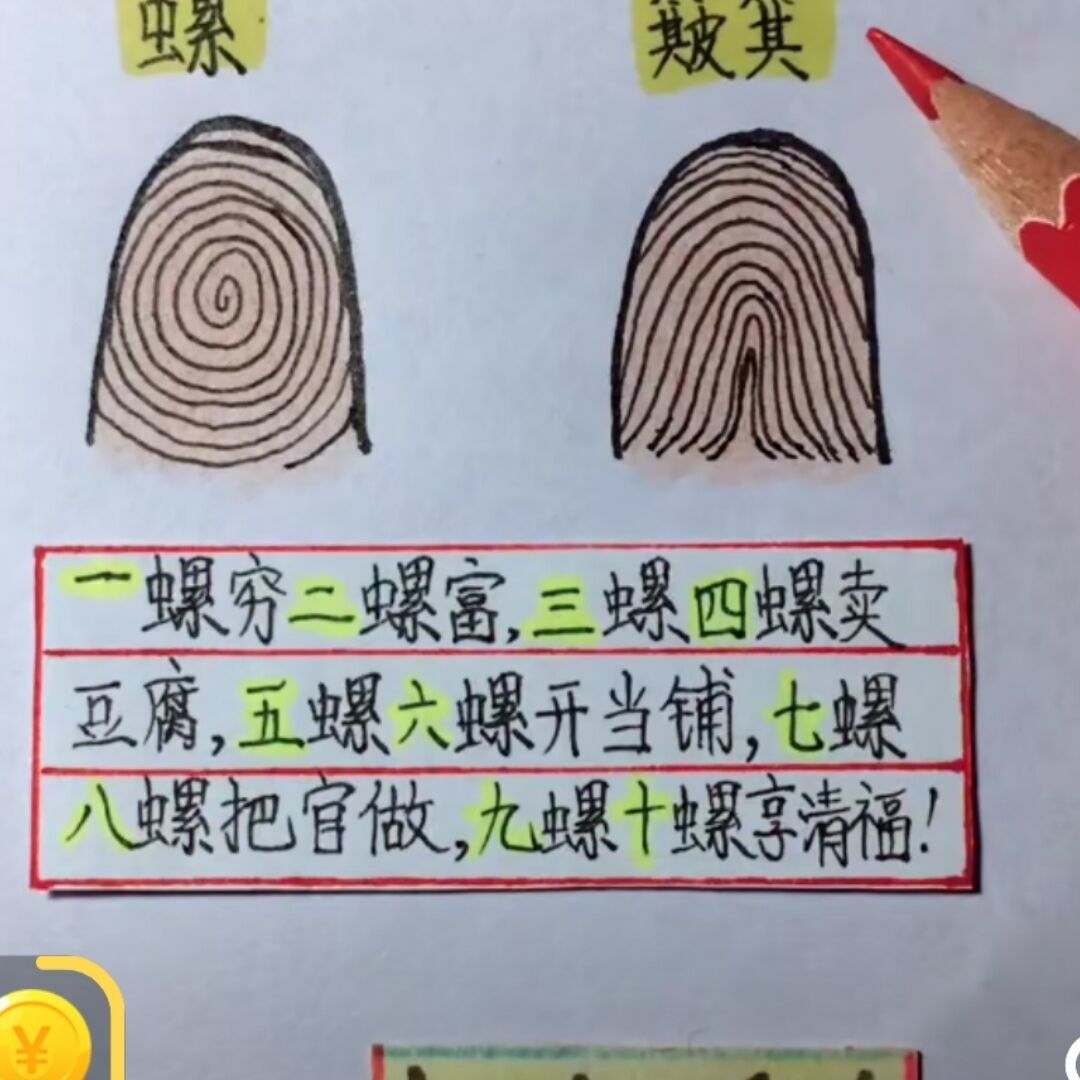 螺 簸箕
一螺穷二螺富,三螺四螺卖
豆腐,五螺六螺开当铺,七螺
八螺把官做,九螺十螺享清福!
¥